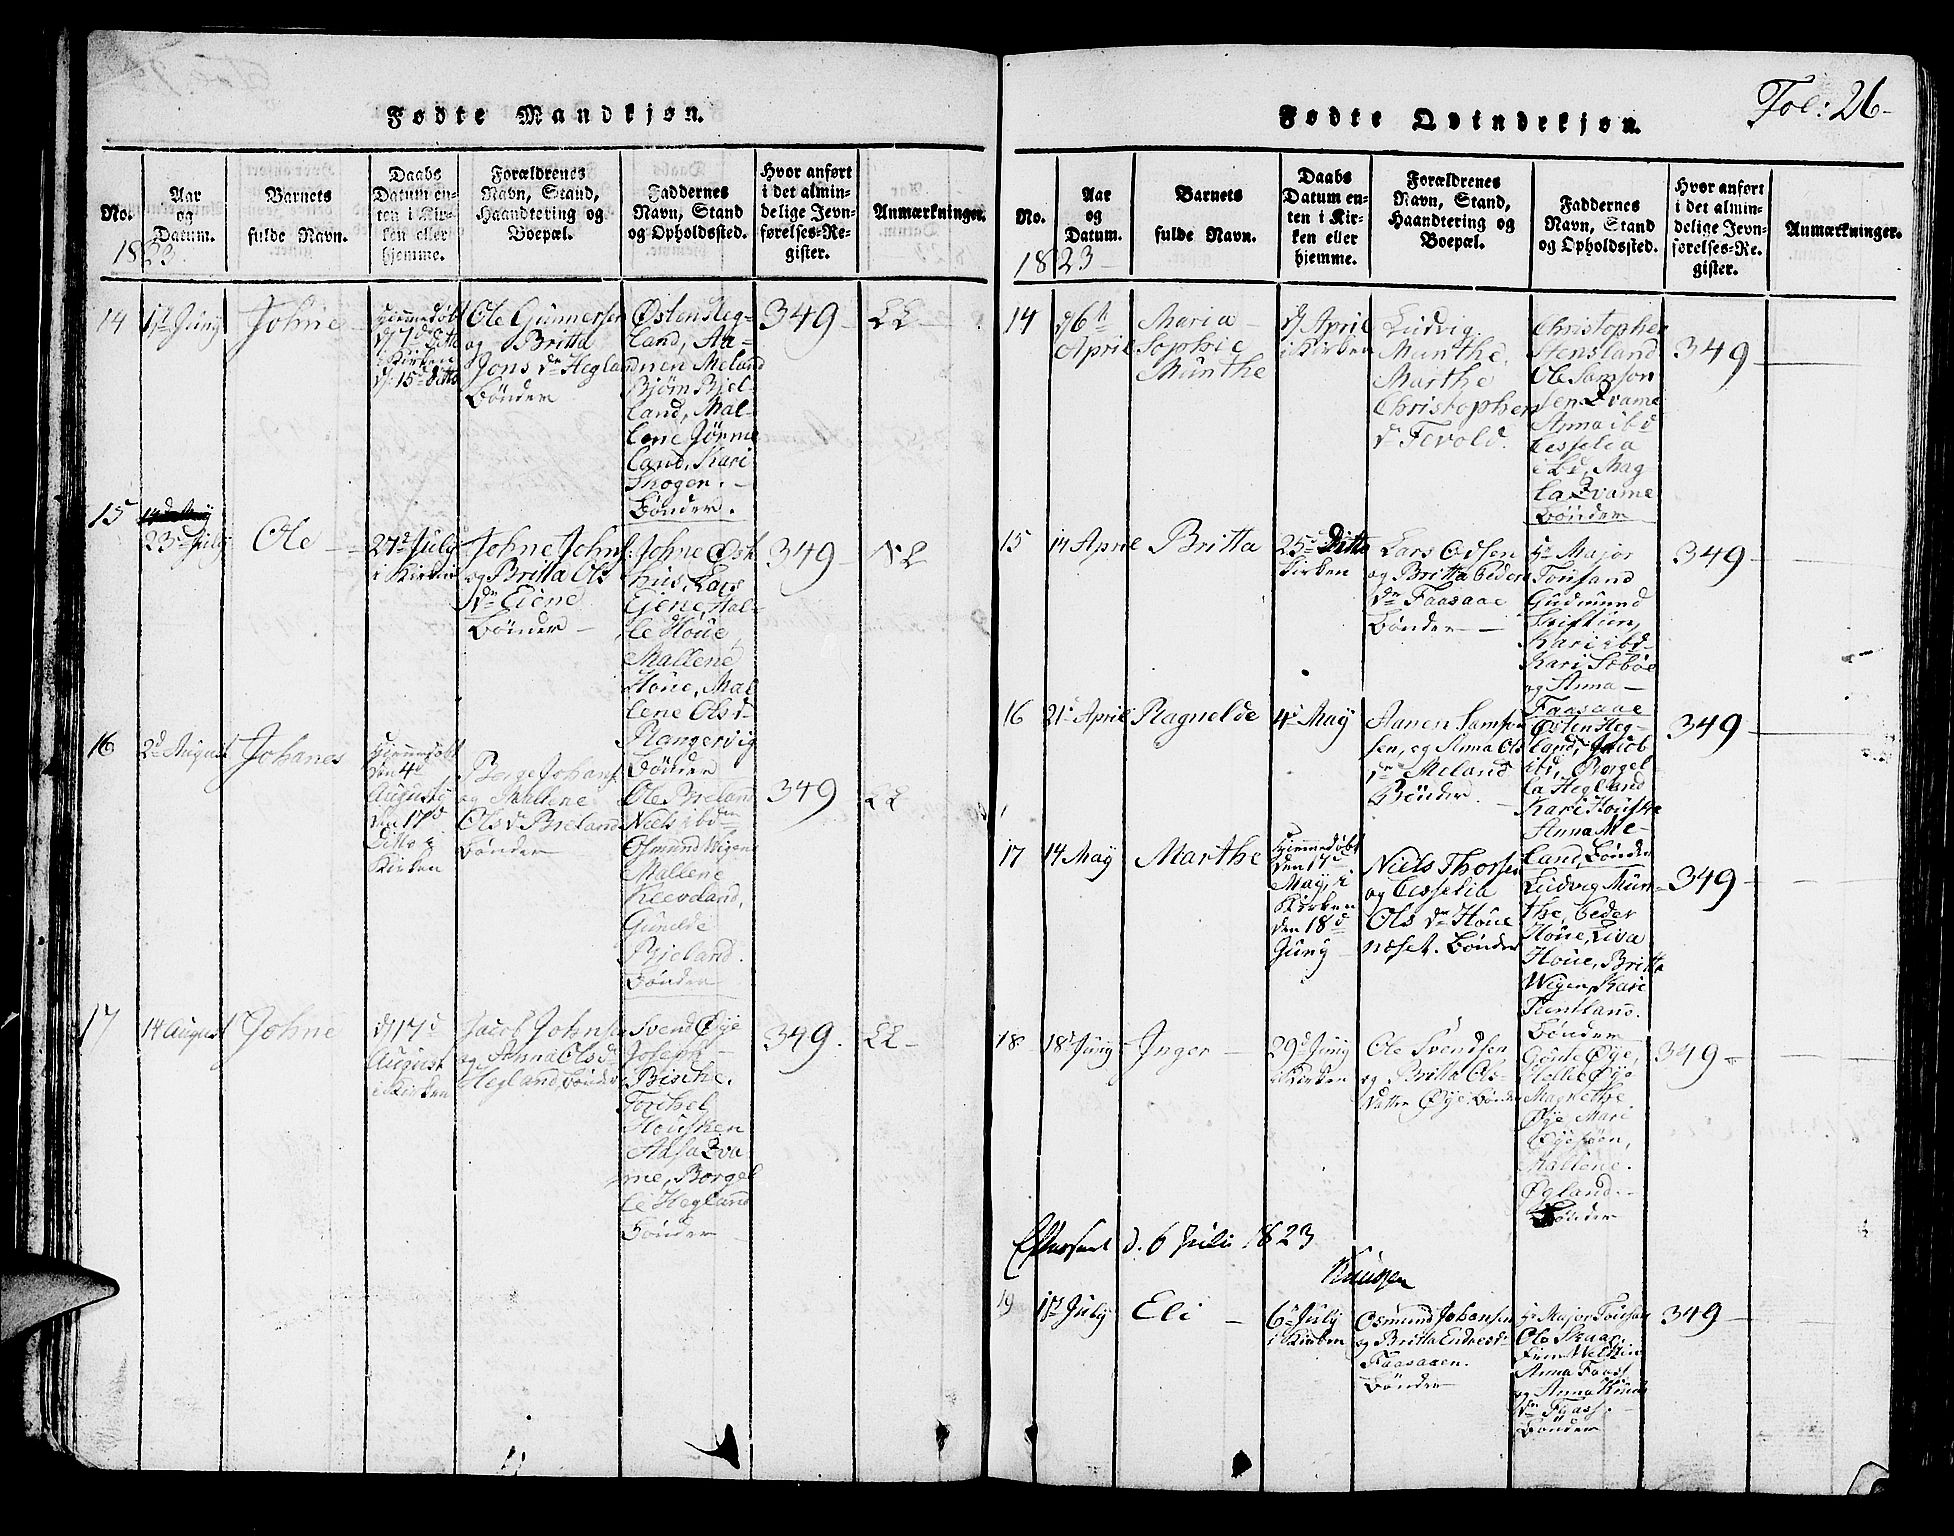 Fødte Mandkjøn.
No.
Aar
og
Datum.
1823.
Barnets
fulde Navn.
Daabs
Datum en-
ten i Kir-
ken eller
hjemme.
Forældrenes
Navn, Stand,
Haandtering og
Boepæl.
Faddernes
Navn, Stand
og Opholdssted.
Hvor anført
i det almin-
delige Jevn-
førelses-Re-
gister.
Anmærkninger.
14
Juny
Johne
Hiemmedøbt
d. 7d ditto
i Kirken
d. 15d ditto
Ole Gunnersen
og Britta
Jons dr Hegland
Bønder
Østen Heg-
land, Aa-
nen Meland
Bjørn Bjel-
land, Mal-
lene Jønne
land, Kari
Skogen.
Bønder.
349
15
23 July
Ole
27 July
i Kirken
Johne Johns:
og Britta Ols
dr Eiene
Bønder
Johne Øst
hus, Lars
Eiene, Hal-
le Høue
Mallene
Høue, Mal
lene Olsd.
Rangervig
Bønder
349
16
2d August
Johanes
Hiemmedøbt
den 4d
Augusty
den 17d
Ditto i
Kirken
Børge Johans
og Mallene
Ols dr Breland
Bønder
Ole Breland
Niels ibdm
Osmund Wigen
Mallene
Kleveland,
Gunelde
Bjeland.
Bønder
349
17
14 August
Johne
d 17d
August
i Kirken
Jacob Johnsen
og Anna Olsd
Hegland, Bønder
Svend Øye
Joseph
Bische.
Torchel
Housken
Aasa Qva
me, Borgel
le Hegland
Bønder
349.
Fol: 26-
Fødte Qvindekjøn.
No.
Aar
og
Datum.
1823
Barnets
fulde Navn.
Daabs
Datum en-
ten i Kir-
ken eller
hjemme.
Forældrenes
Navn, Stand,
Haandtering og
Boepæl.
Faddernes
Navn, Stand
og Opholdssted.
Hvor anført
i det almin-
delige Jevn-
førelses-Re-
gister.
Anmærkninger.
14
d 6th
April
Maria
Sophie
Munthe
April
i Kirken
Ludvig
Munthe.
Marthe
Christophers
dr Tevold.
Christopher
Stensland
Ole Samson
sen Qvame
Anna ibd
Cesselia
ibd, Mag
la Qvame
Bønder
349
15
14 April
Britta
25 Ditto
Kirken
Lars Edsen
og Britta Peders
dr Faasaae
Bønder
Hr Major
Tousand
Gudmund
Kari ibd
Kari Sebøe
og Anna
Faasaae
349
16
21 April
Ragnelde
4d May
Aanen Sams
sen, og Anna Ols
dr Meland
Bønder.
Østen Heg-
land, Jacob
ibd, Borgel
la Hegland
Kari Houske
Anna Me-
land, Bønder
349
17
14 May
Marthe
Hiemmedøbt
den 17d
May, i
Kirken
den 18d
Juny
Niels Thorsen
og Cesselia
Ols dr Høue
næset. Bønder
Ludvig Mun-
the, Peder
Høue, Siva
Høue, Britta
Wigen, Kari
Tuntland.
Bønder
349
18
18d Juny
Inger
29d Juny
i Kirken
Ole Svendsen
og Britta Ols-
Datter Øye. Bønder
Gøde Øye,
Helle Øye
Magnethe
Øye, Mari
Øyesøen,
Mallene.
Øgland.
Bønder
349
Efterseet d. 6 Juli 1823
Knudsen
19
July
Eli
6 July
i Kirken
Osmund Johansen
og Britta Endresd
Faasaaen.
Bønder
Hr Major Tousan
Ole Skaar
Anna Faas
og Anna
dr Faas.
Bønder
349